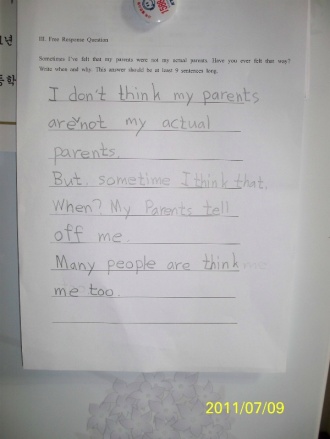 III. Free Response Question
Sometimes I've felt that my parents were not my actual parents. Have you ever felt that way?
Write when and why. This answer should be at least 9 sentences long.
I don't think my parents
are not my actual
parents.
But, sometime I think that.
When? My Parents tell
off me.
Many people are think me
me too.
2011/07/09